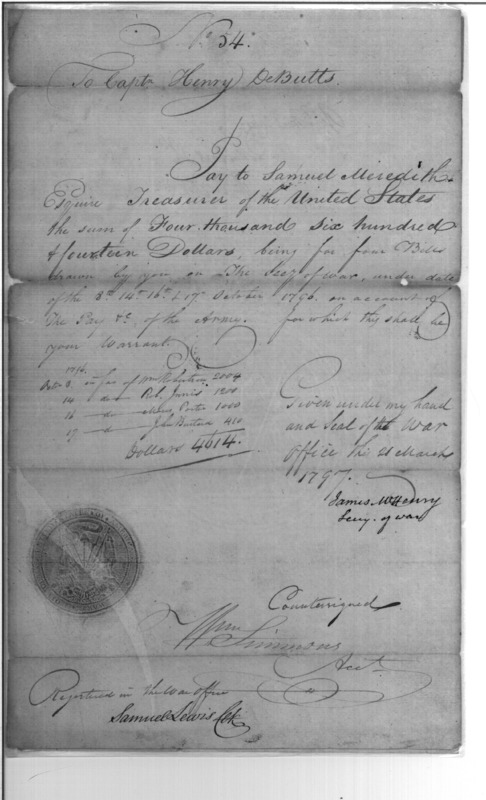 No 54.
To Capt. Henry DeButts.
Pay to Samuel Meredith
Esquire Treasurer of the United States
the sum of Four thousand six hundred
& fourteen Dollars, being for four Bills
drawn by you on The Secy of War, under date
of the 8th 14th 16th & 17th October 1796. on account of
the Pay &c. of the Army. for which this shall be
your Warrant.
1796.
Octr 8. in fav of Wm Robertson 2004
14 - do - Rob. 1200
16 - do - Porter 1000
17 - do - Jno 410
Dollars 4614.
Given under my hand
and Seal of the War
Office this 21 March
1797.
James McHenry
Secy. of war
Countersigned
Wm Simmons
Acct
Registered in the War office
Samuel Lewis Clk